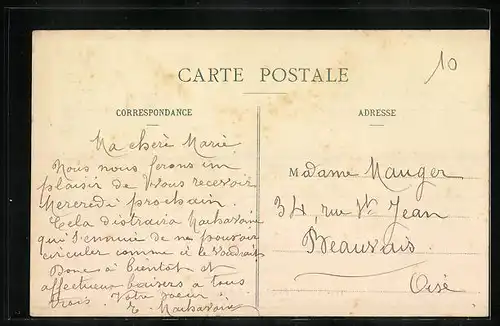 10
CARTE POSTALE
CORRESPONDANCE
ADRESSE
Ma chère Marie
Nous nous ferons un
plaisir de vous recevoir
Mercredi prochain.
Cela distraira
qui s'ennuie de ne pouvoir
circuler comme il le voudrait
Donc à bientôt et
affectueux baisers à tous
trois. Votre soeur
Madame Mauger
34, rue St Jean
Beauvais.
Oise